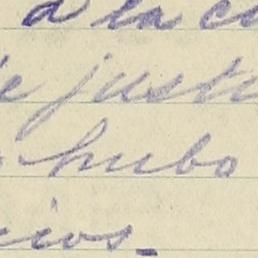 a la cu
e justi
hubo
cios_